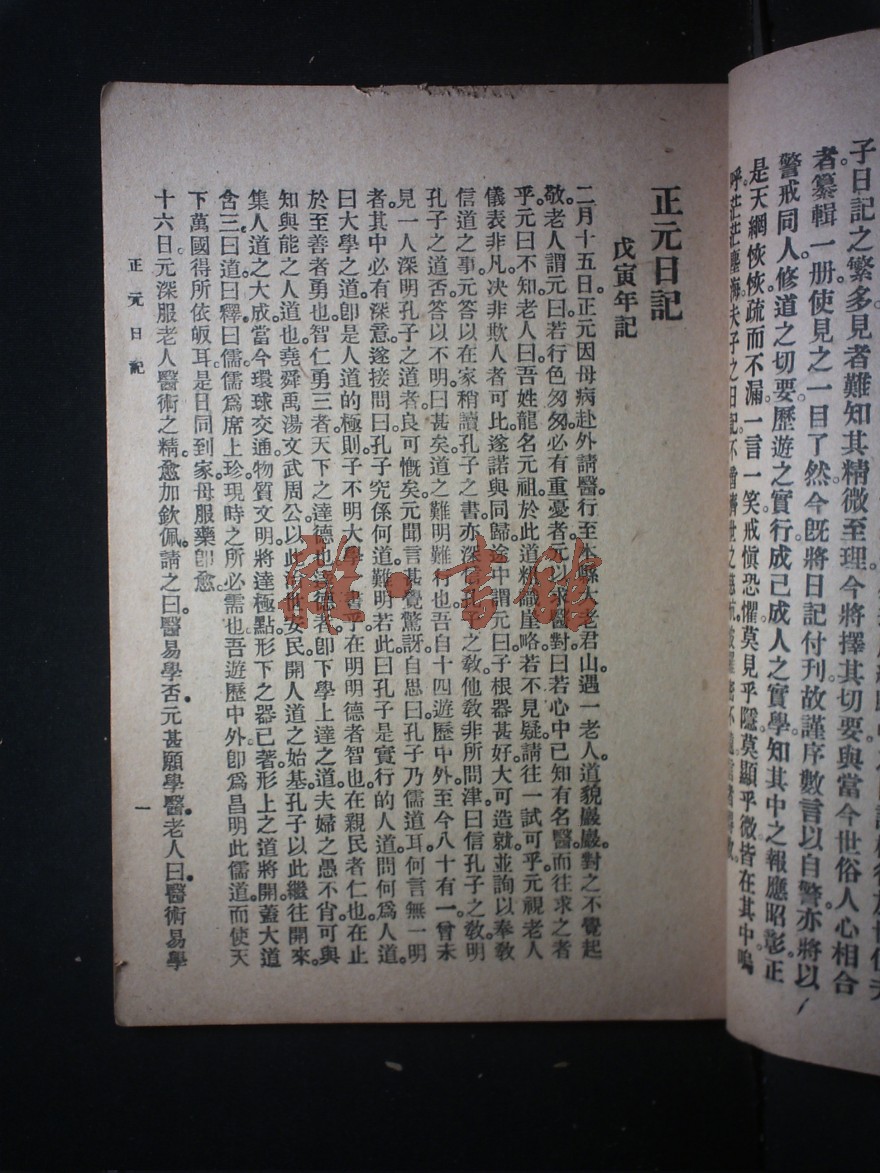 子日記之繁多見者難知其精微至理今將擇其切要與當今世俗人心相合
者纂輯一册使見之一目了然今既將日記付刊故謹序數言以自警亦將以
警戒同人修道之切要歷遊之實行成己成人之實學知其中之報應昭彰正
是天網恢恢疏而不漏一言一笑戒愼恐懼莫見乎隱莫顯乎微皆在其中嗚
呼茫茫塵海夫子之日記不啻濟世之慈航
正元日記
戊寅年記
二月十五日。正元因母病赴外請醫。行至本縣大老君山。遇一老人。道貌巖巖。對之不覺起
敬。老人謂元曰。若行色匆匆。必有重憂者。元以求醫對。曰。若心中已知有名醫而往求之者
乎。元曰不知。老人曰。吾姓龍名元祖。於此道粗識崖略。若不見疑。請往一試可乎。元視老人
儀表非凡。决非欺人者可比。遂諾與同歸。途中謂元曰。子根器甚好。大可造就。並詢以奉敎
信道之事。元答以在家稍讀孔子之書。亦深信孔子之敎。他敎非所問津。曰信孔子之敎。明
孔子之道否。答以不明。曰甚矣道之難明難行也。吾自十四遊歷中外。至今八十有一。曾未
見一人深明孔子之道者。良可慨矣。元聞言甚覺驚訝。自思曰。孔子乃儒道耳。何言無一明
者。其中必有深意。遂接問曰。孔子究係何道難明若此。曰孔子是實行的人道。問何爲人道。
曰大學之道。卽是人道的極則。子不明大學乎。大學在明明德者智也。在親民者仁也。在止
於至善者勇也。智仁勇三者。天下之達德也。達德者。卽下學上達之道。夫婦之愚不肖。可與
知與能之人道也。堯舜禹湯文武周公。以此治世安民。開人道之始基。孔子以此繼往開來。
集人道之大成。當今環球交通。物質文明。將達極點。形下之器已著。形上之道將開。蓋大道
含三。曰道。曰釋。曰儒。儒爲席上珍。現時之所必需也。吾遊歷中外。卽爲昌明此儒道。而使天
下萬國得所依皈耳。是日同到家。母服藥卽愈。
十六日。元深服老人醫術之精。愈加欽佩。請之曰。醫易學否。元甚願學醫。老人曰。醫術易學
正元日記
一
雅·書館